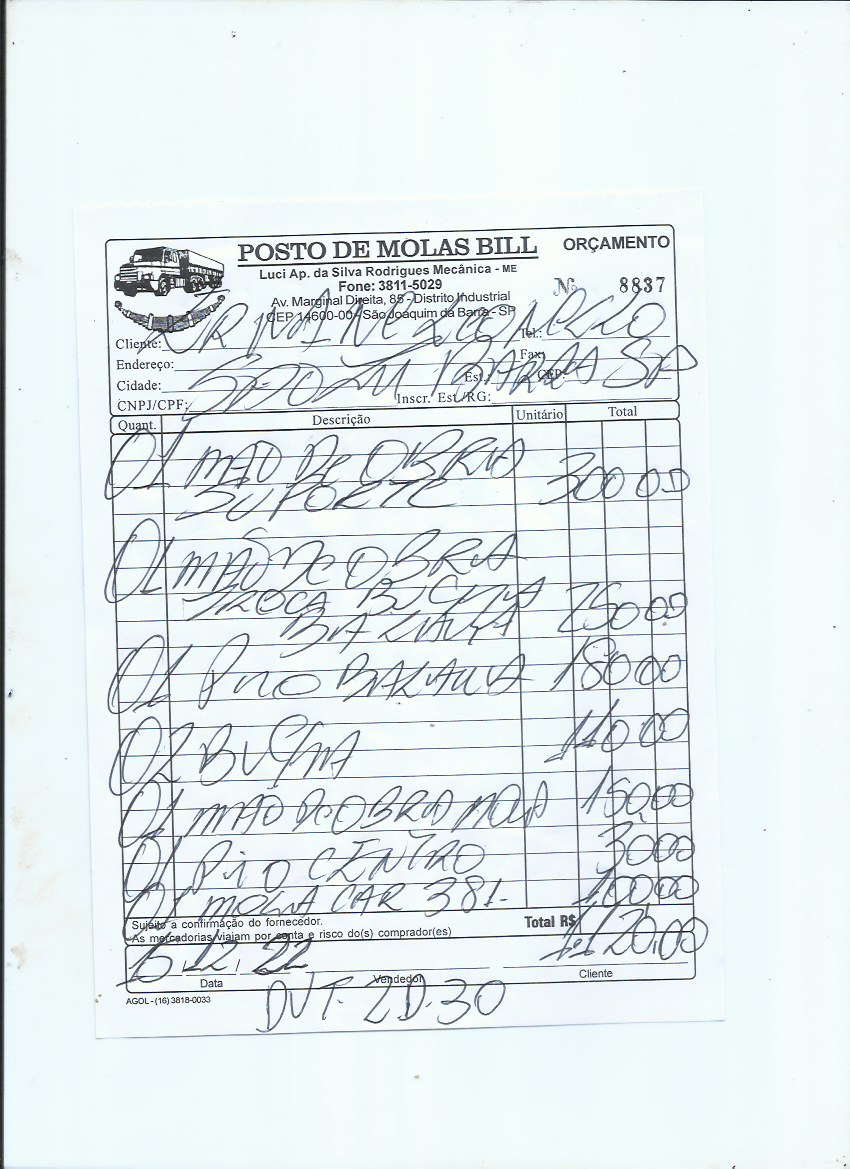 POSTO DE MOLAS BILL
ORÇAMENTO
Luci Ap. da Silva Rodrigues Mecânica - ME
Fone: 3811-5029
Nº 8837
Av. Marginal Direita, 85 - Distrito Industrial
CEP 14600-00 - São Joaquim da Barra - SP
Cliente: Tel.:
Endereço: Fax:
Cidade: BARRA SP Est.: CEP:
CNPJ/CPF: Inscr. Est./RG:
Quant. Descrição Unitário Total
01 MÃO DE OBRA
SUPORTE 300 00
01 MÃO DE OBRA
TROCA BUCHA
BALANÇA 250 00
01 PINO BALANÇA 180 00
02 BUCHA 110 00
01 MÃO DE OBRA MOLA 150,00
01 PINO CENTRO 30 00
01 MOLA CAR 381- 100 00
Sujeito a confirmação do fornecedor.
As mercadorias viajam por conta e risco do(s) comprador(es)
Total R$ 1120,00
Data Vendedor Cliente
AGOL - (16) 3818-0033